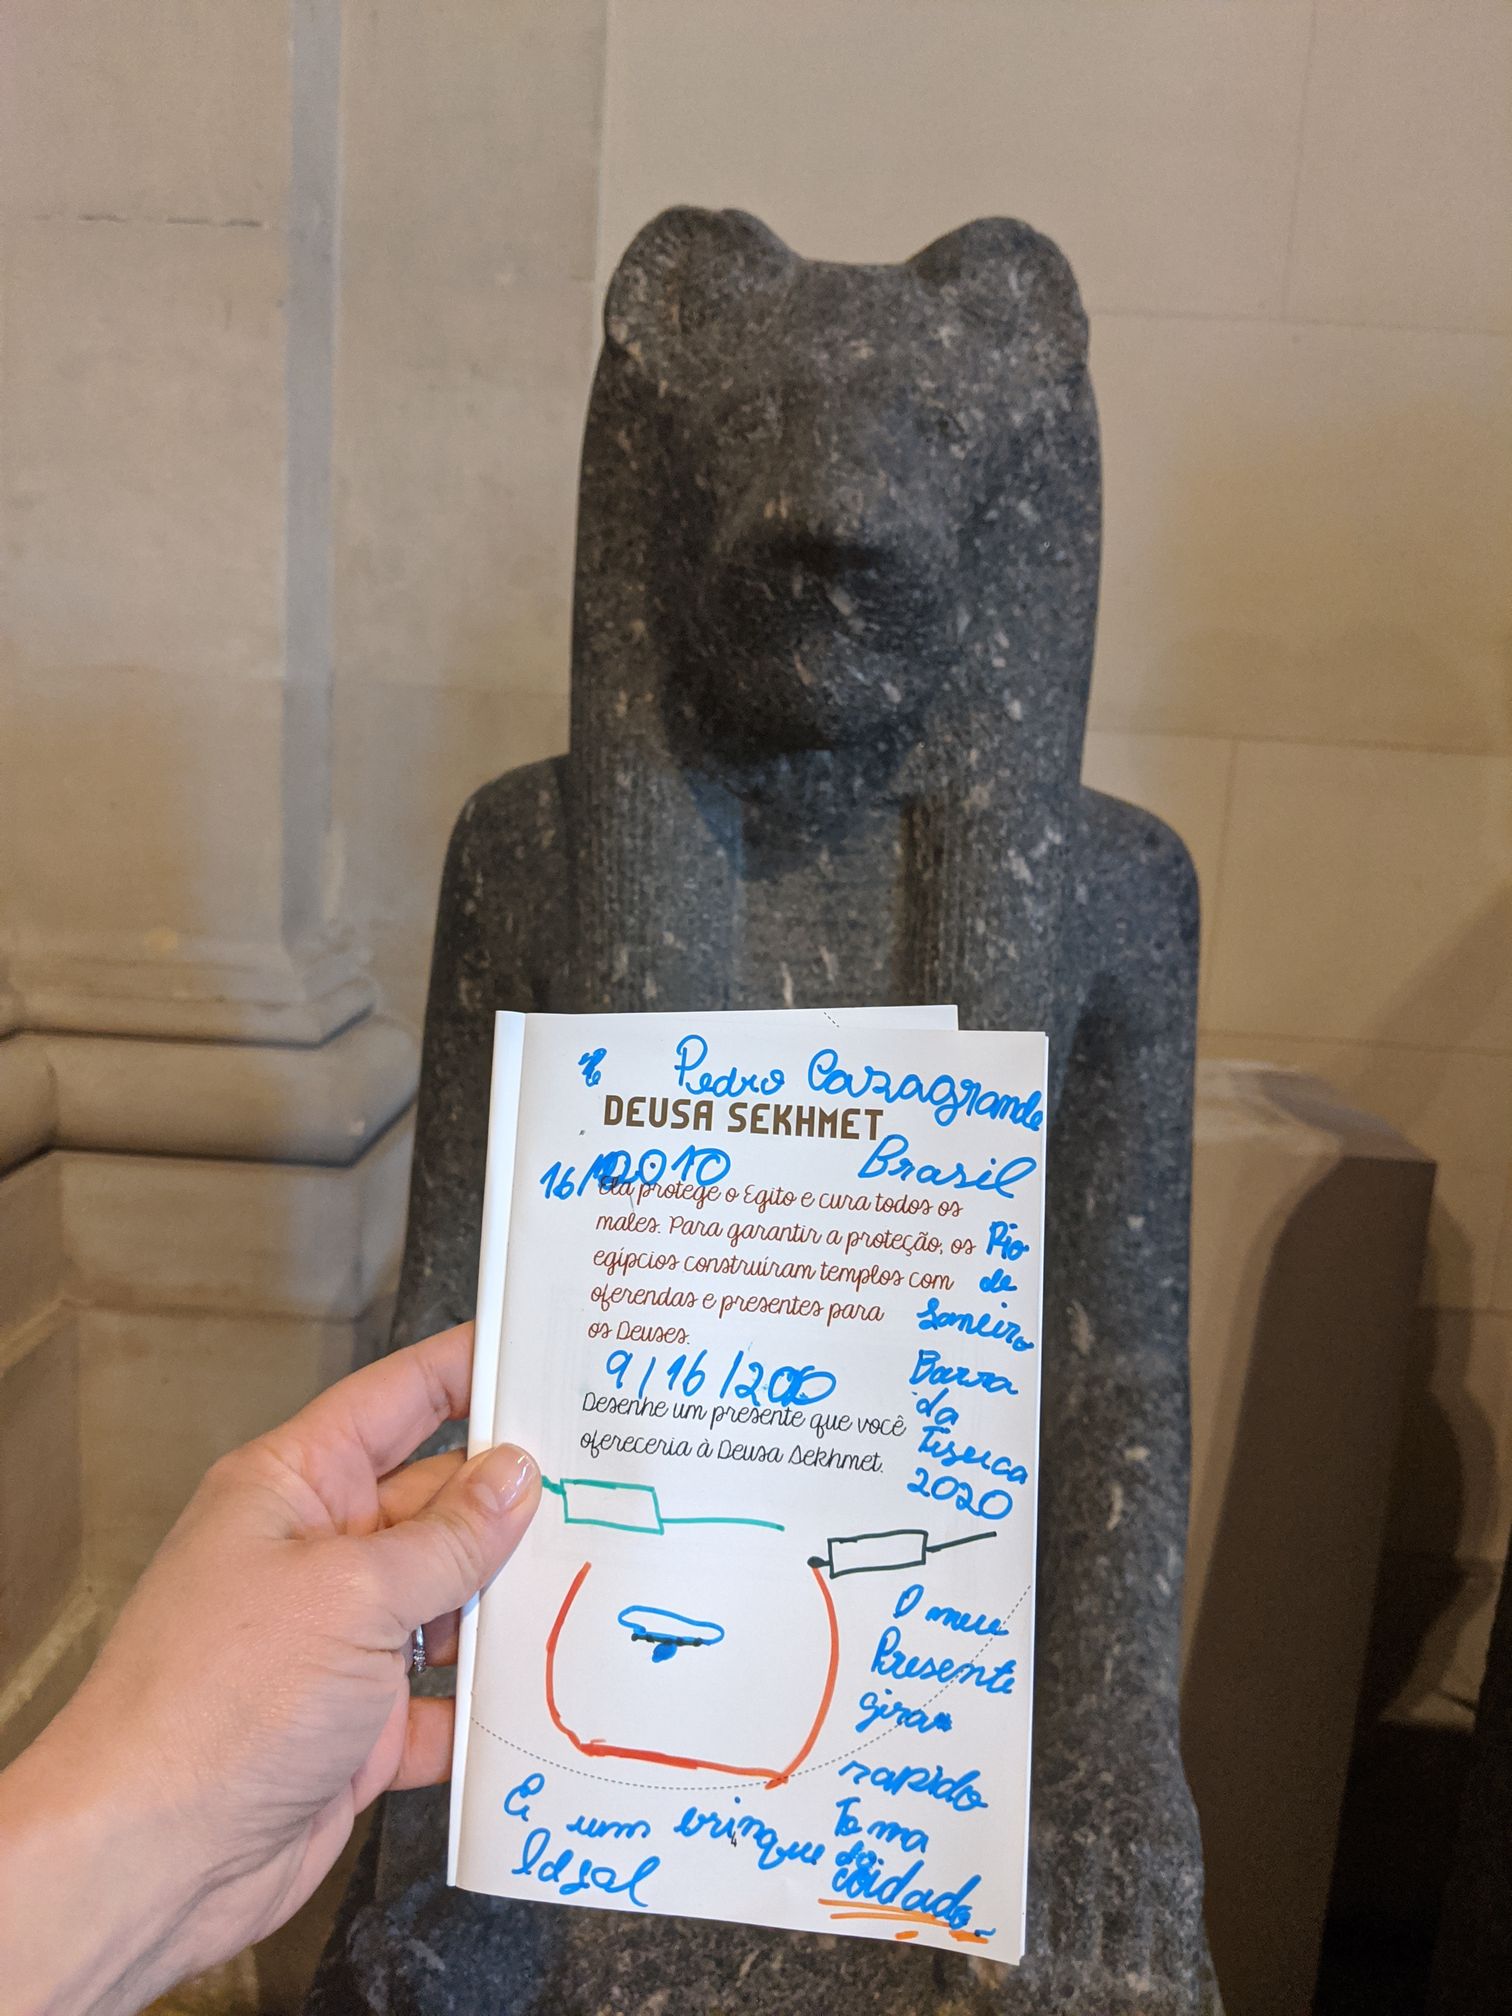 Pedro Cazagrande
DEUSA SEKHMET
Brasil
16/ 2010
Ela protege o Egito e cura todos os
males. Para garantir a proteção, os
egípcios construíram templos com
oferendas e presentes para
os Deuses.
Rio
de
Janeiro
Barra
da
Tijuca
2020
9/16/200
Desenhe um presente que você
ofereceria à Deusa Sekhmet.
O meu
Presente
gira
rapido
Toma
coidado
E um brinque do
Ideal
4